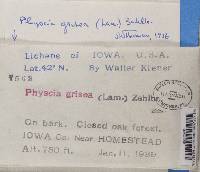 Physcia grisea (Lam.) Zahlbr.
1936
Lichens of IOWA, U.S.A.
Lat. 42° N. By Walter Kiener
Physcia grisea (Lam.) Zahlbr.
On bark. Closed oak forest.
IOWA Co. Near HOMESTEAD
Alt. 750 ft. Jan. 11, 1936